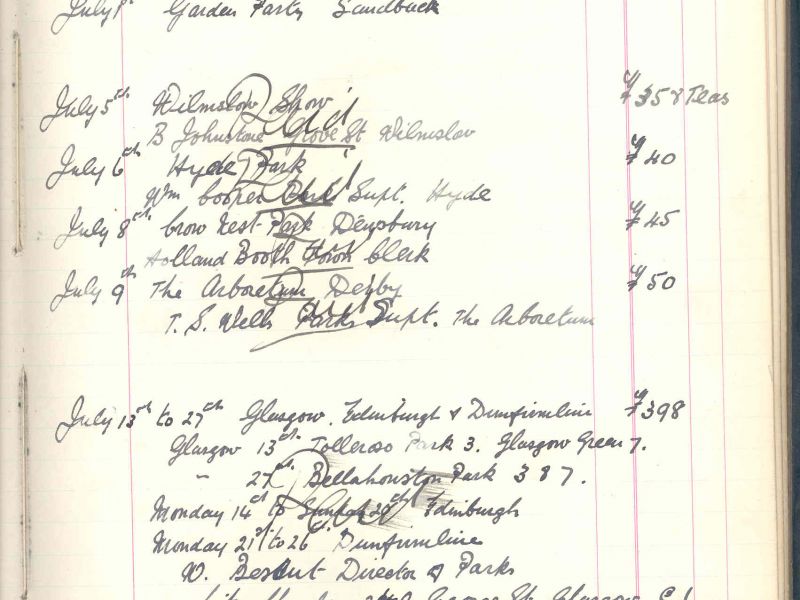 July 1st Garden Party Sandback
July 5th Wilmslow Show £358 Teas
B Johnstone Grove St Wilmslow
July 6th Hyde Park £40
Wm Cooper Park Supt. Hyde
July 8th Crow Nest Park Dewsbury £45
Holland Booth Town Clerk
July 9th The Arboretum Derby £50
T. S. Wells Parks Supt. The Arboretum
July 13th to 27th Glasgow. Edinburgh & Dunfirmline £398
Glasgow 13th Tollcross Park 3. Glasgow Green 7.
" 27th Bellahouston Park 3 & 7.
Monday 14th to Sunday 20th Edinburgh
Monday 21st to 26th Dunfirmline
W. Director of Parks
George St. Glasgow C.1.